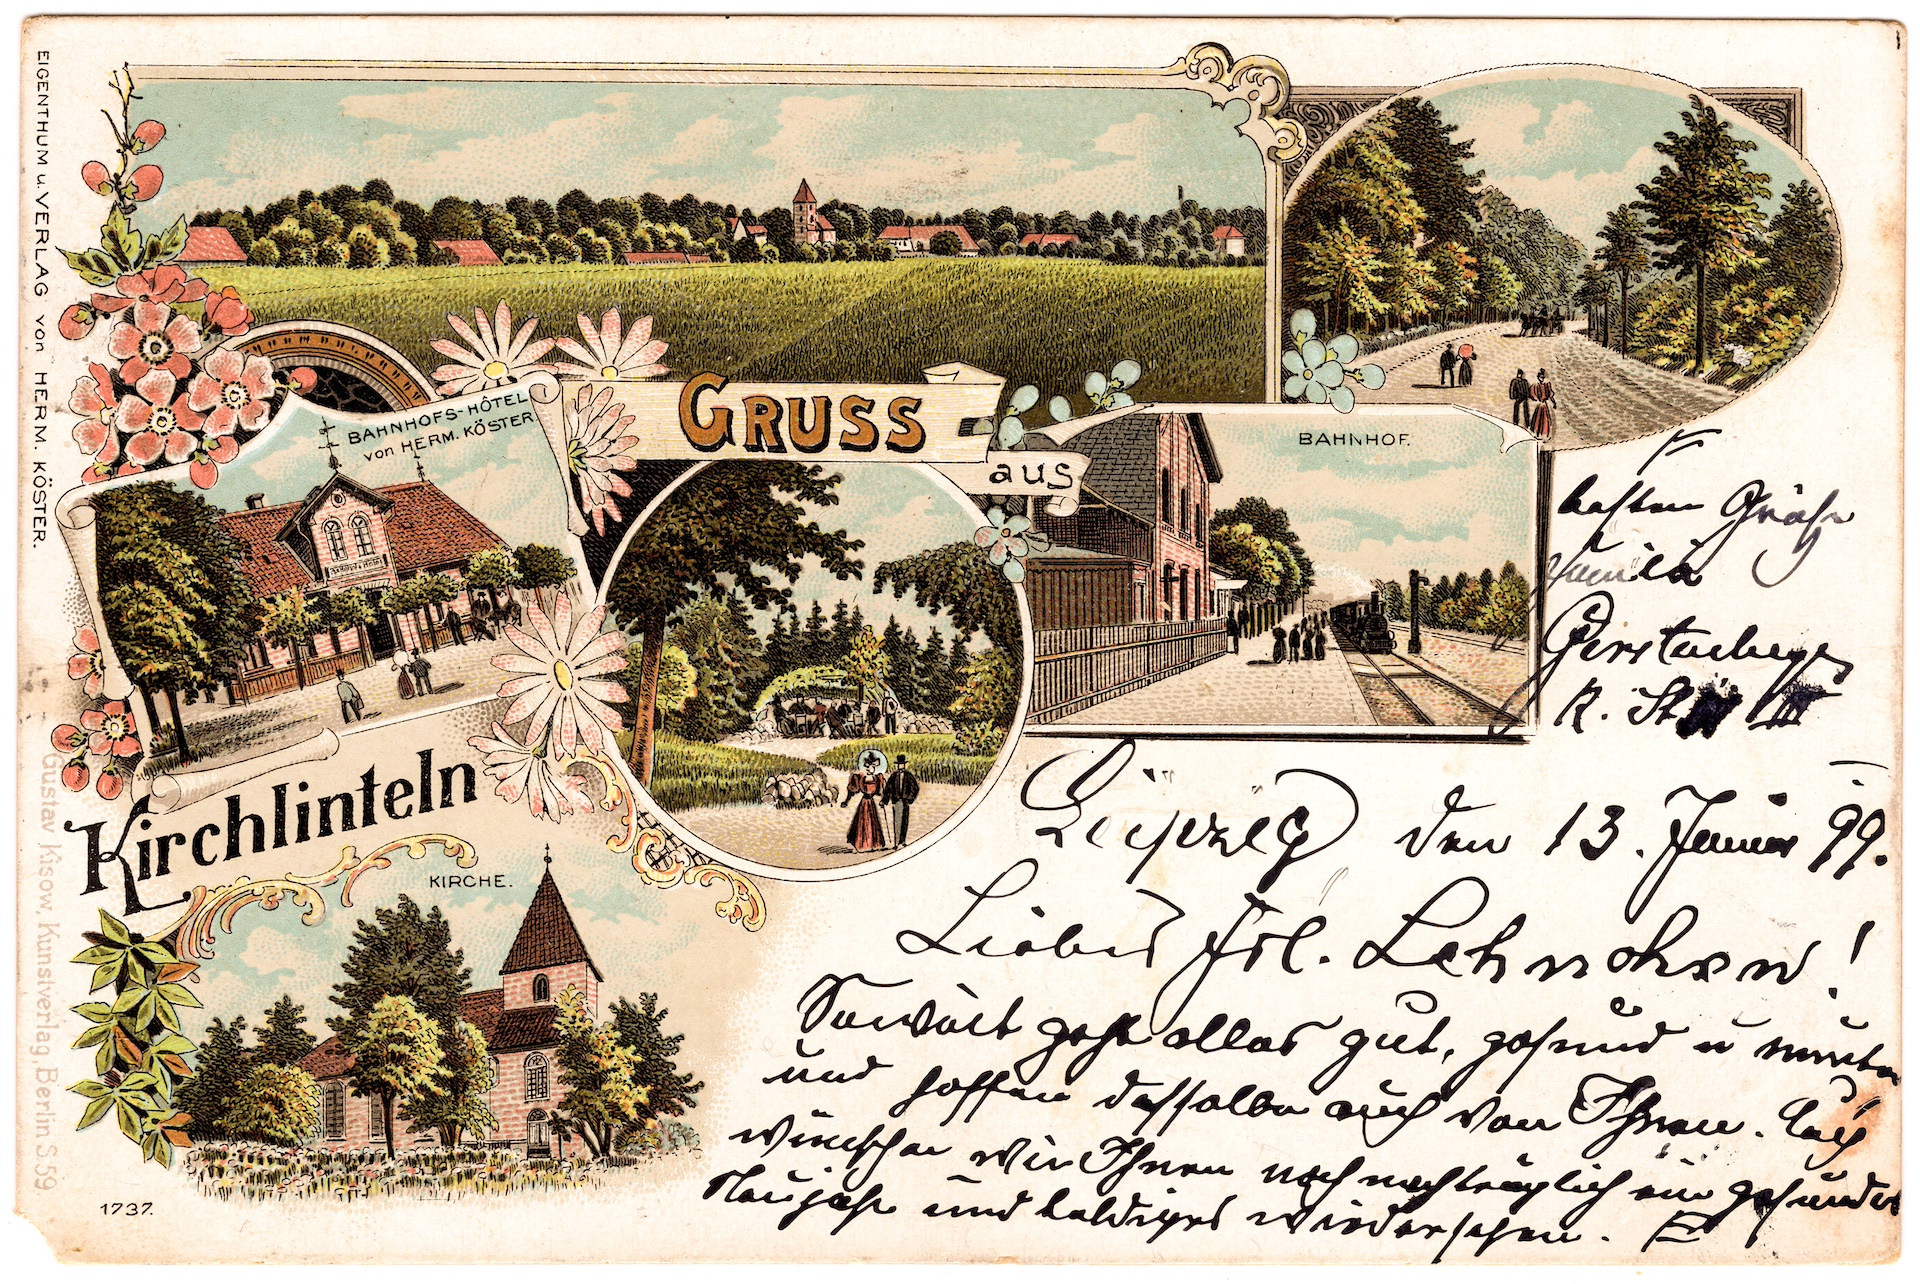 EIGENTHUM u. VERLAG von HERM. KÖSTER.
Gustav Kisow, Kunstverlag, Berlin S 59
GRUSS
aus
Kirchlinteln
BAHNHOFS-HÔTEL
von HERM. KÖSTER
BAHNHOF.
KIRCHE.
1737.
Leipzig den 13. Januar 99.
Liebes Frl.
Soweit geht alles gut, gesund u munter
und hoffen dasselbe auch von Ihnen. Auch
wünschen wir Ihnen noch nachträglich ein gesundes
Neujahr und baldiges wiedersehen.
besten Grüße
Familie